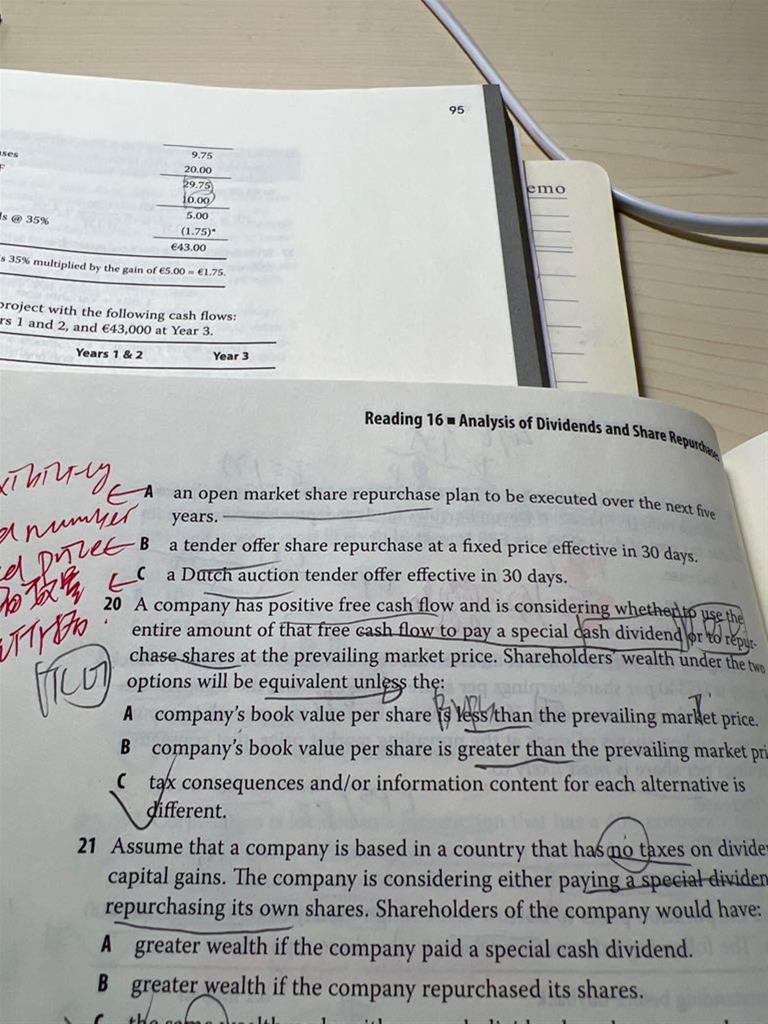 95
9.75
20.00
29.75
10.00
s @ 35%
5.00
(1.75)*
€43.00
s 35% multiplied by the gain of €5.00 = €1.75.
project with the following cash flows:
rs 1 and 2, and €43,000 at Year 3.
Years 1 & 2 Year 3
emo
Reading 16 ■ Analysis of Dividends and Share Repurchases
A an open market share repurchase plan to be executed over the next five
years.
B a tender offer share repurchase at a fixed price effective in 30 days.
C a Dutch auction tender offer effective in 30 days.
number
20 A company has positive free cash flow and is considering whether to use the
entire amount of that free cash flow to pay a special cash dividend or to repur-
chase shares at the prevailing market price. Shareholders' wealth under the two
options will be equivalent unless the:
A company's book value per share is less than the prevailing market price.
B company's book value per share is greater than the prevailing market pri
C tax consequences and/or information content for each alternative is
different.
21 Assume that a company is based in a country that has no taxes on divide
capital gains. The company is considering either paying a special dividen
repurchasing its own shares. Shareholders of the company would have:
A greater wealth if the company paid a special cash dividend.
B greater wealth if the company repurchased its shares.
C